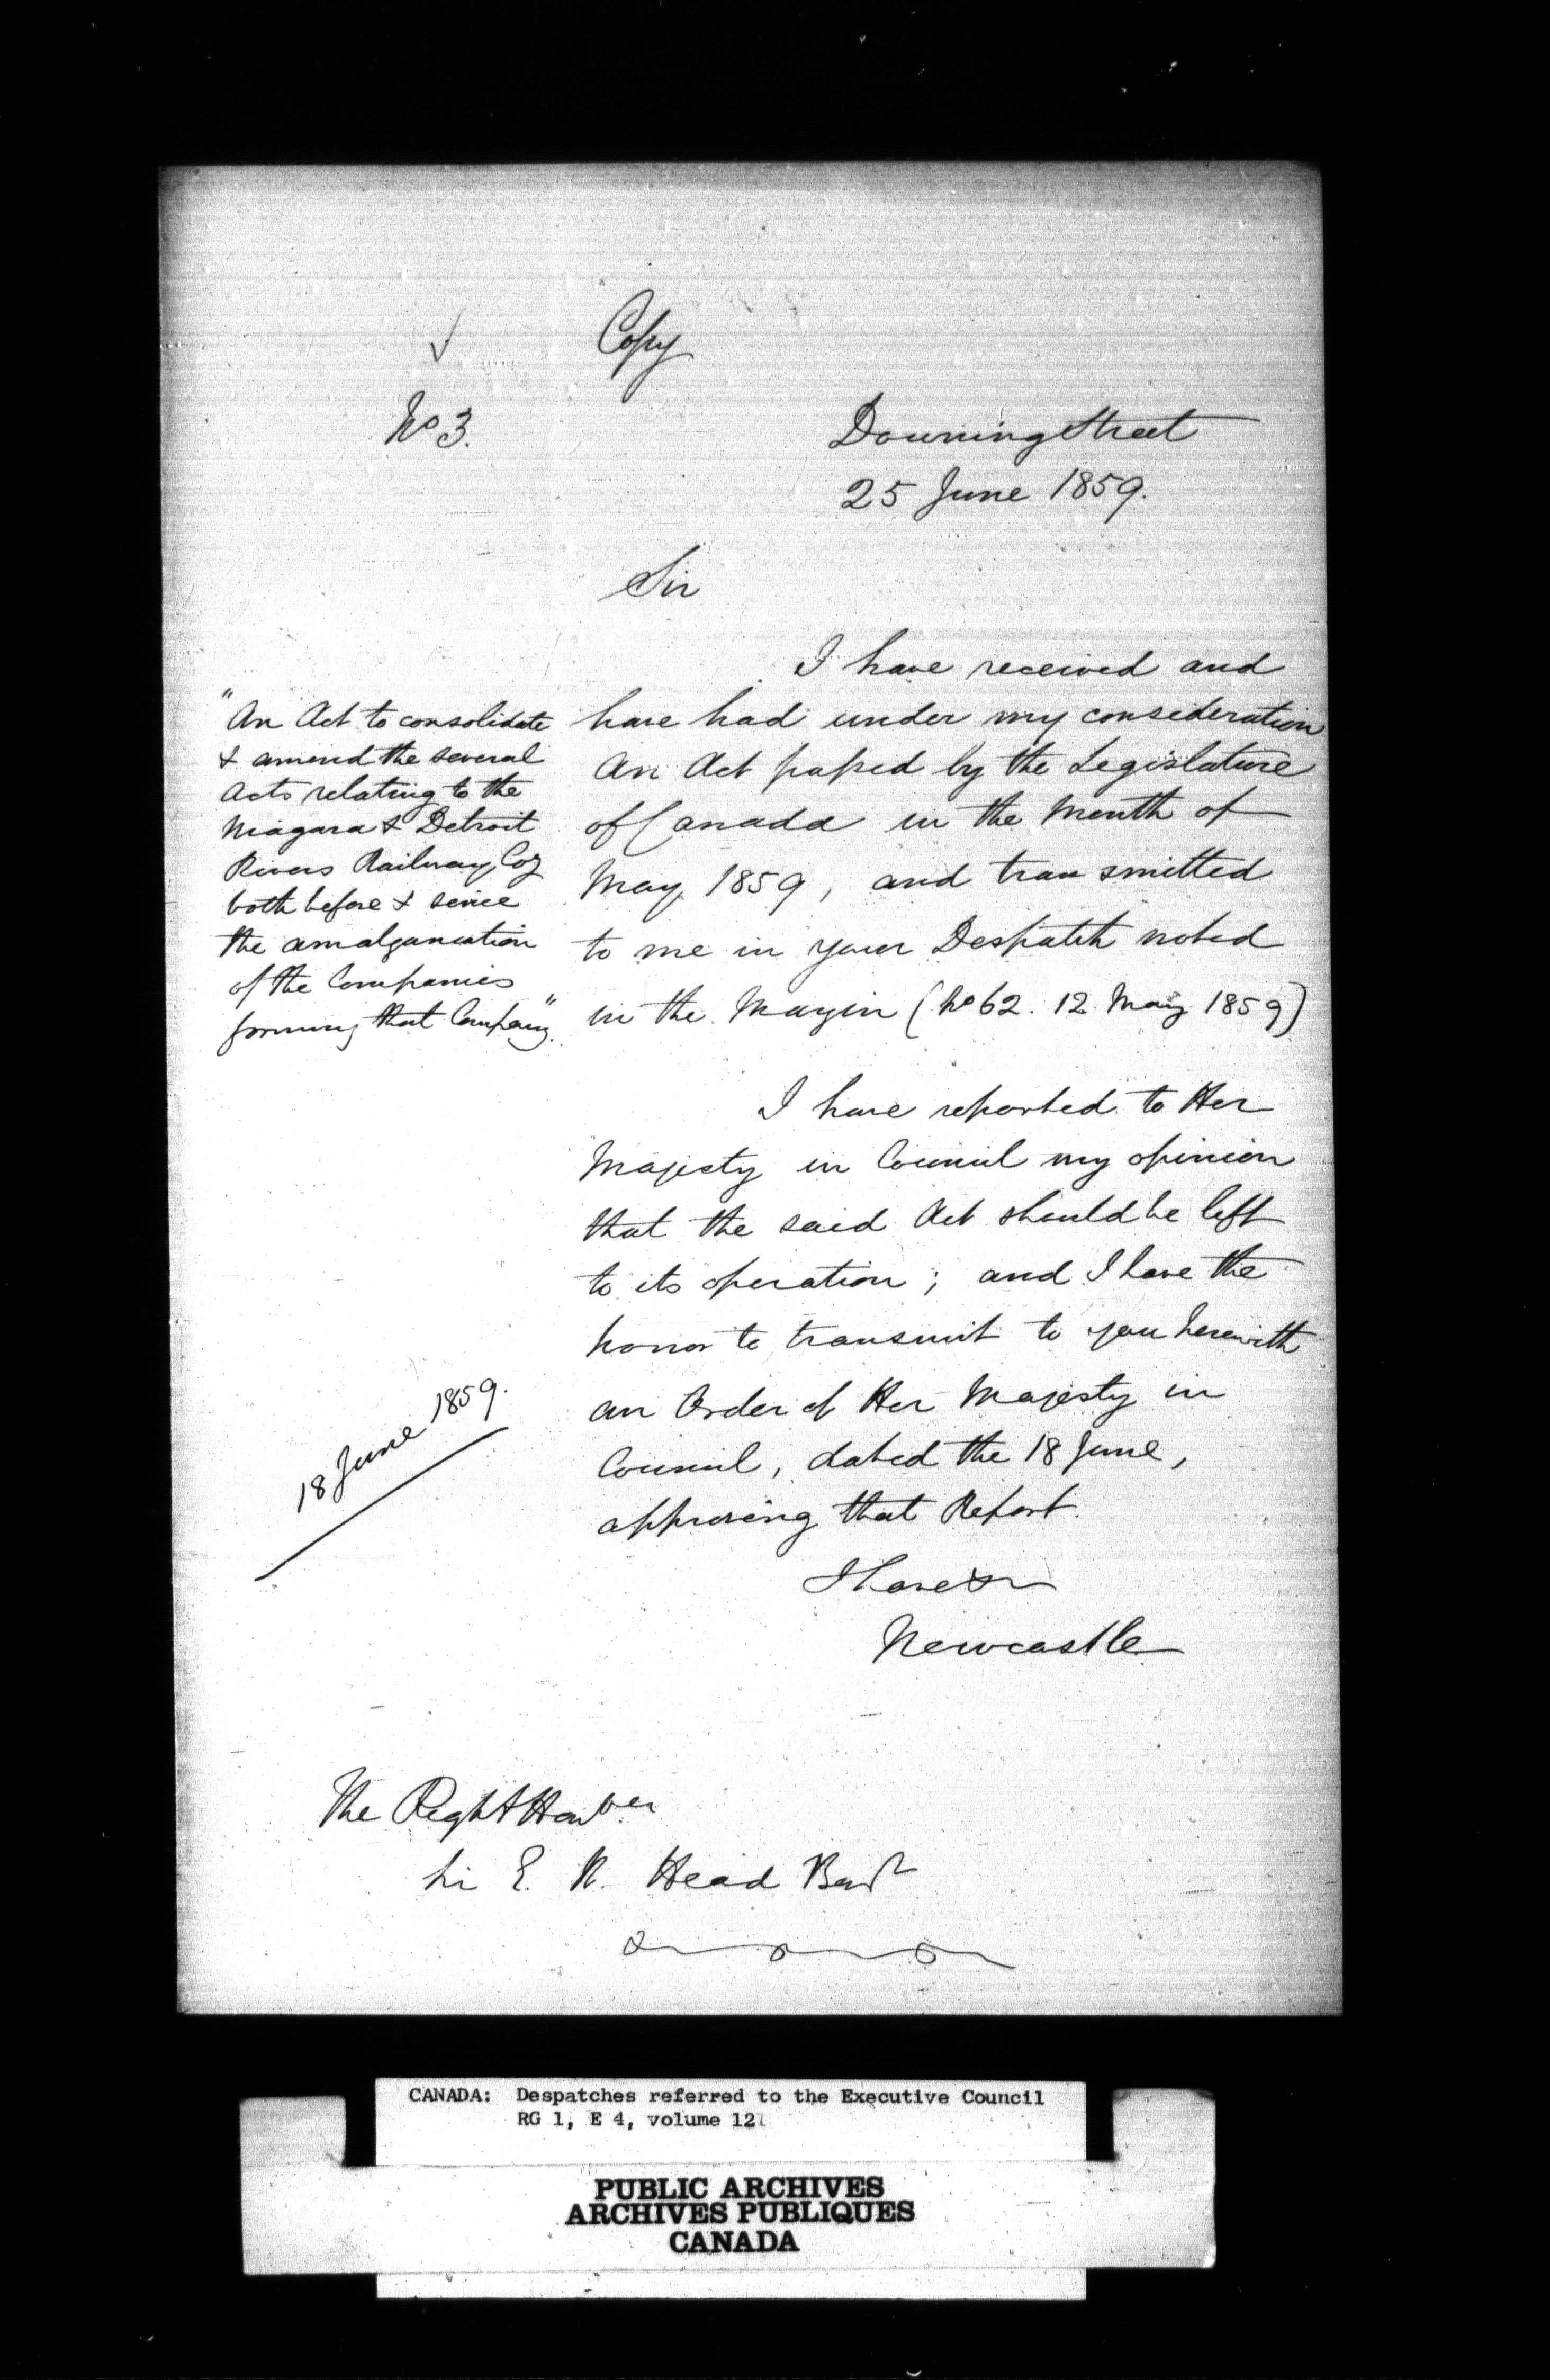 Copy
No 3.
Downing Street
25 June 1859.
Sir
I have received and
have had under my consideration
An Act passed by the Legislature
of Canada in the Month of
May 1859, and transmitted
to me in your Despatch noted
in the Margin (No 62. 12 May 1859)
"An Act to consolidate
& amend the several
Acts relating to the
Niagara & Detroit
Rivers Railway Coy
both before & since
the amalgamation
of the Companies
forming that Company."
I have reported to Her
Majesty in Council my opinion
that the said Act should be left
to its operation; and I have the
honor to transmit to you herewith
an Order of Her Majesty in
Council, dated the 18 June,
approving that Report.
18 June 1859.
I have &
Newcastle
The Right Honble
Sir E. Head Bart
CANADA: Despatches referred to the Executive Council
RG 1, E 4, volume 121
PUBLIC ARCHIVES
ARCHIVES PUBLIQUES
CANADA